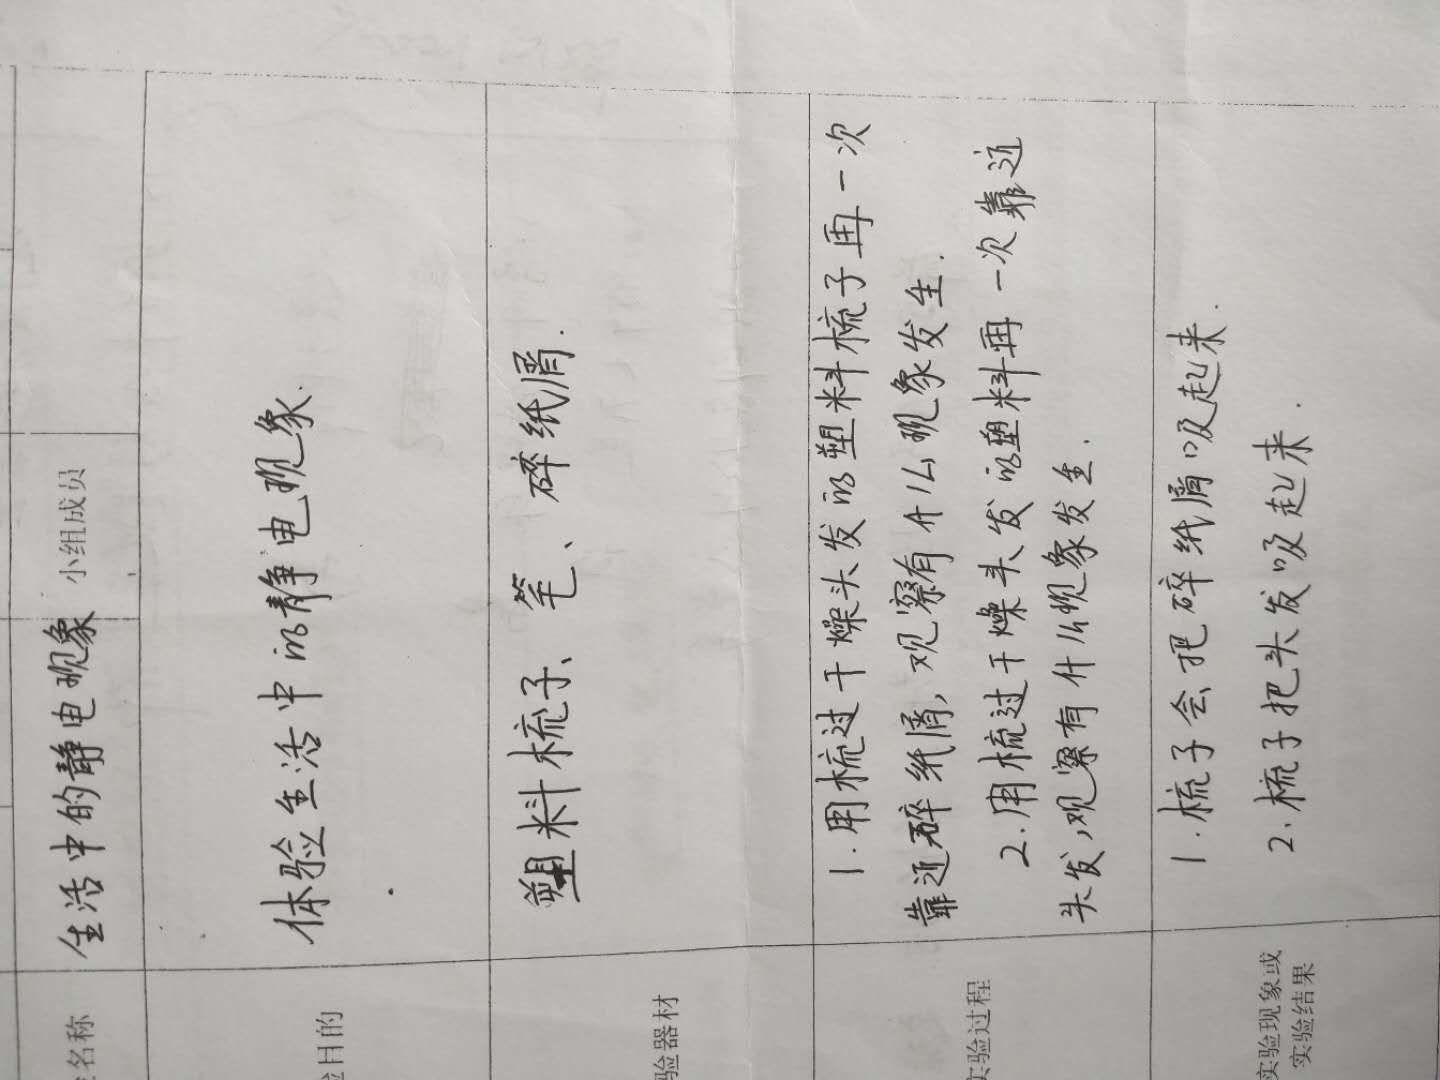 名称 生活中的静电现象 小组成员
目的 体验生活中的静电现象.
验器材 塑料梳子、笔、碎纸屑.
实验过程 1.用梳过干燥头发的塑料梳子再一次
靠近碎纸屑,观察有什么现象发生.
2.用梳过干燥头发的塑料再一次靠近
头发,观察有什么现象发生.
实验现象或 1.梳子会把碎纸屑吸起来.
实验结果 2.梳子把头发吸起来.